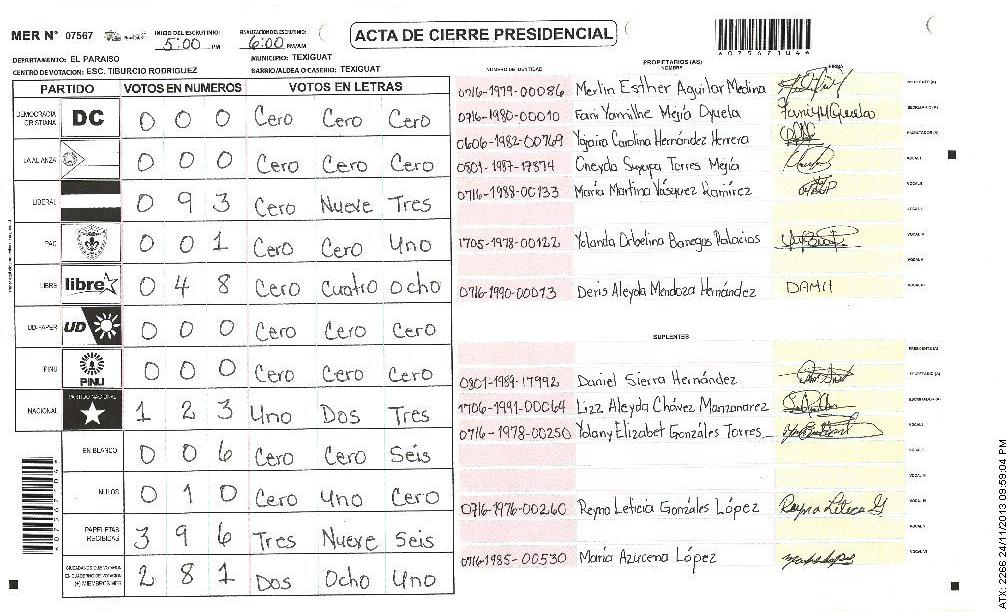 MER N° 07567
INICIO DEL ESCRUTINIO: 5:00 PM
FINALIZACION DEL ESCRUTINIO: 6:00 PM/AM
ACTA DE CIERRE PRESIDENCIAL
4075671U4
DEPARTAMENTO: EL PARAISO
MUNICIPIO: TEXIGUAT
CENTRO DE VOTACION: ESC. TIBURCIO RODRIGUEZ
BARRIO/ALDEA O CASERIO: TEXIGUAT
PARTIDO VOTOS EN NUMEROS VOTOS EN LETRAS
DEMOCRACIA CRISTIANA DC 0 0 0 Cero Cero Cero
LA ALIANZA 0 0 0 Cero Cero Cero
LIBERAL 0 9 3 Cero Nueve Tres
PAC 0 0 1 Cero Cero Uno
LIBRE libre 0 4 8 Cero Cuatro Ocho
UD-FAPER UD 0 0 0 Cero Cero Cero
PINU PINU 0 0 0 Cero Cero Cero
NACIONAL PARTIDO NACIONAL 1 2 3 Uno Dos Tres
EN BLANCO 0 0 6 Cero Cero Seis
NULOS 0 1 0 Cero Uno Cero
PAPELETAS RECIBIDAS 3 9 6 Tres Nueve Seis
CIUDADANOS QUE VOTARON EN CUADERNO DE VOTACION (+) MIEMBROS MER 2 8 1 Dos Ocho Uno
PROPIETARIOS (AS)
NUMERO DE IDENTIDAD NOMBRE FIRMA
0716-1979-00086 Merlin Esther Aguilar Medina PRESIDENTE (A)
0716-1980-00010 Fani Yamilhe Mejía Oyuela SECRETARIO (A)
0606-1982-00769 Carolina Hernández Herrera ESCRUTADOR (A)
0801-1987-17874 Oneyda Suyapa Torres Mejía VOCAL I
0716-1988-00133 María Martina Vásquez Ramírez VOCAL II
VOCAL III
1705-1978-00122 Yolanda Orbelina Banegas Palacios VOCAL IV
VOCAL V
0716-1990-00073 Deris Aleyda Mendoza Hernández DAMH VOCAL VI
SUPLENTES
PRESIDENTE (A)
0801-1989-17992 Daniel Sierra Hernández SECRETARIO (A)
1706-1991-00064 Lizz Aleyda Chávez Manzanarez ESCRUTADOR (A)
0716-1978-00250 Yolany Elizabet Gonzáles Torres VOCAL I
VOCAL II
VOCAL III
0716-1976-00260 Reyna Leticia Gonzáles López VOCAL IV
VOCAL V
0716-1985-00530 María Azucena López VOCAL VI
ATX: 2266 24/11/2013 09:59:04 PM